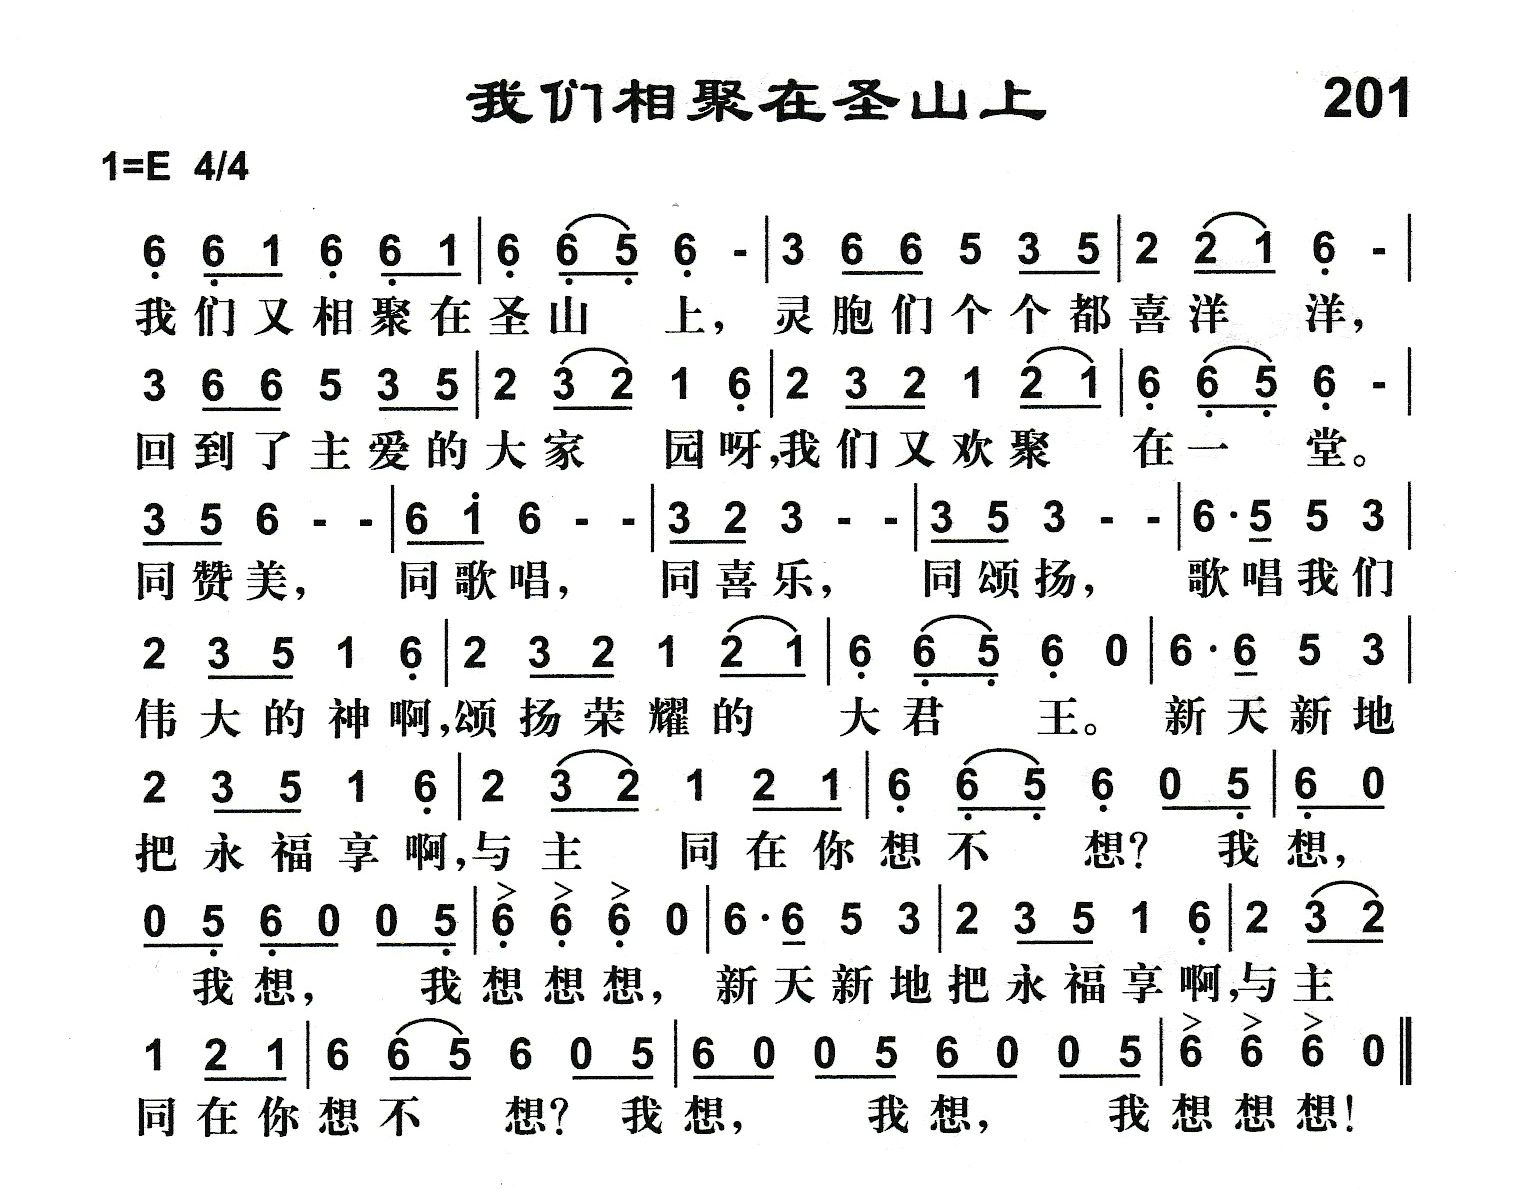 我们相聚在圣山上 201
1=E 4/4
6 6 1 6 6 1 | 6 6 5 6 - | 3 6 6 5 3 5 | 2 2 1 6 - |
我们又相聚在圣山 上，灵胞们个个都喜洋 洋，
3 6 6 5 3 5 | 2 3 2 1 6 | 2 3 2 1 2 1 | 6 6 5 6 - |
回到了主爱的大家 园呀，我们又欢聚 在一 堂。
3 5 6 - - | 6 1 6 - - | 3 2 3 - - | 3 5 3 - - | 6 · 5 5 3 |
同赞美， 同歌唱， 同喜乐， 同颂扬， 歌唱我们
2 3 5 1 6 | 2 3 2 1 2 1 | 6 6 5 6 0 | 6 · 6 5 3 |
伟大的神啊，颂扬荣耀的 大君 王。 新天新地
2 3 5 1 6 | 2 3 2 1 2 1 | 6 6 5 6 0 5 | 6 0
把永福享啊，与主 同在你想不 想？ 我想，
0 5 6 0 0 5 | 6 6 6 0 | 6 · 6 5 3 | 2 3 5 1 6 | 2 3 2
我想， 我想想想， 新天新地把永福享啊，与主
1 2 1 | 6 6 5 6 0 5 | 6 0 0 5 6 0 0 5 | 6 6 6 0 ‖
同在你想不 想？ 我想， 我想， 我想想想！